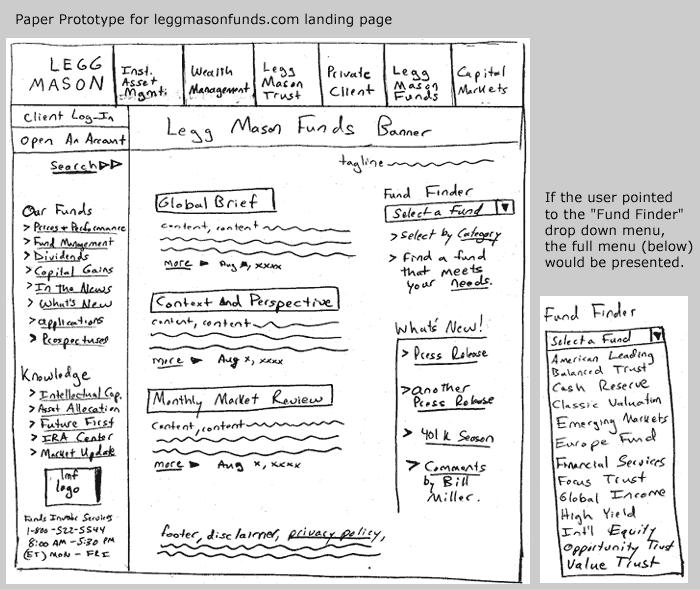 Paper Prototype for leggmasonfunds.com landing page
LEGG
MASON
Inst.
Asset
Mgmt.
Wealth
Management
Legg
Mason
Trust
Private
Client
Legg
Mason
Funds
Capital
Markets
Client Log-In
Open An Account
Legg Mason Funds Banner
Search
tagline
Our Funds
> Prices + Performance
> Fund Management
> Dividends
> Capital Gains
> In the News
> What's New
> applications
> Prospectuses
Knowledge
> Intellectual Cap.
> Asset Allocation
> Future First
> IRA Center
> Market Update
lmf
logo
Funds Investor Services
1-800-522-5544
8:00 AM - 5:30 PM
(ET) MON - FRI
Global Brief
content, content
more Aug x, xxxx
Context and Perspective
content, content
more Aug x, xxxx
Monthly Market Review
content, content
more Aug x, xxxx
footer, disclaimer, privacy policy,
Fund Finder
Select a Fund
> Select by Category
> Find a fund
that meets
your needs.
What's New!
> Press Release
> another
Press Release
> 401k Season
> Comments
by Bill
Miller.
If the user pointed
to the "Fund Finder"
drop down menu,
the full menu (below)
would be presented.
Fund Finder
Select a Fund
American Leading
Balanced Trust
Cash Reserve
Classic Valuation
Emerging Markets
Europe Fund
Financial Services
Focus Trust
Global Income
High Yield
Int'l Equity
Opportunity Trust
Value Trust